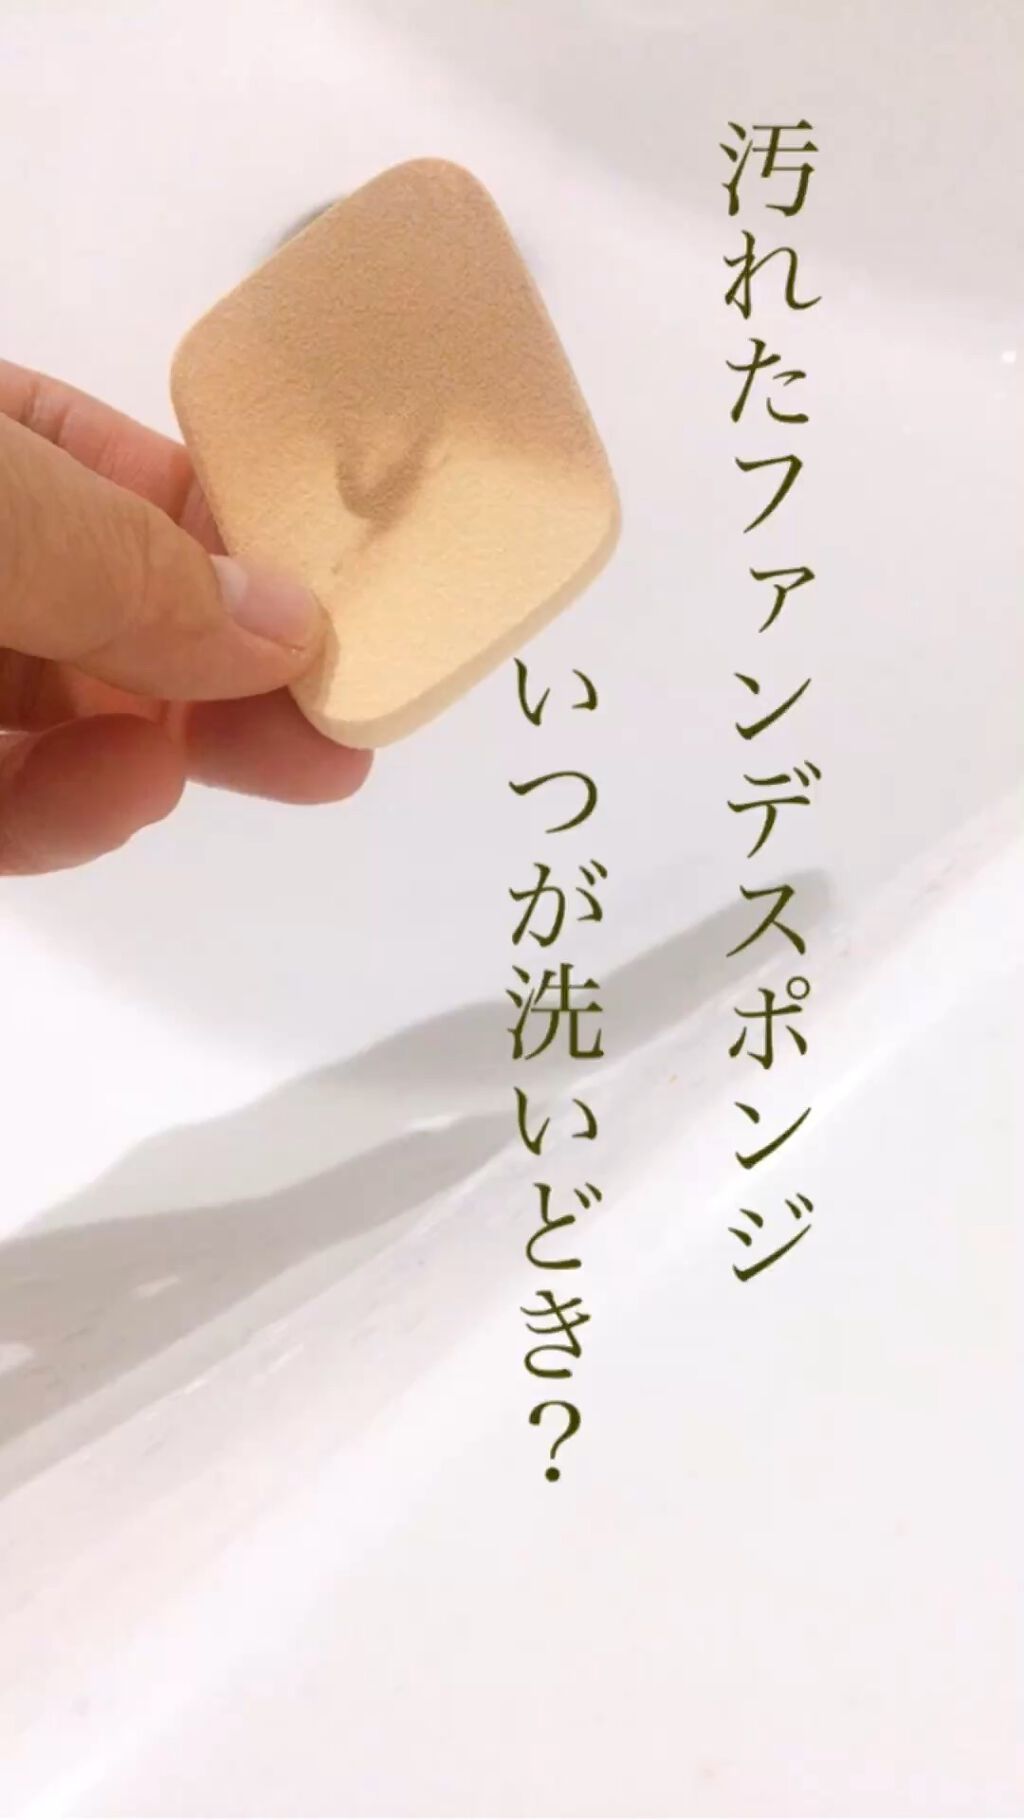 汚れたファンデスポンジ
いつが洗いどき？